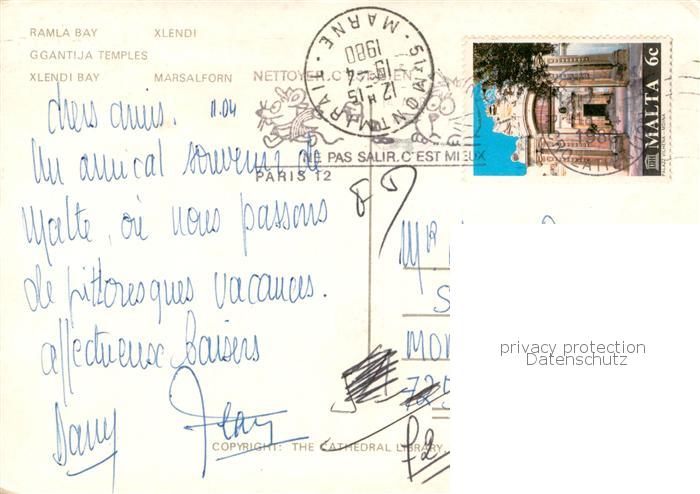 RAMLA BAY XLENDI
GGANTIJA TEMPLES
XLENDI BAY MARSALFORN
NETTOYER, C'EST BIEN
NE PAS SALIR, C'EST MIEUX
PARIS 12
51 MONTMIRAIL MARNE
12 H 15
19-4
1980
MALTA 6c
11.04
chers amis.
Un amical souvenir de
Malte, où nous passons
de pittoresques vacances.
affectueux baisers
Dany Jean
COPYRIGHT: THE CATHEDRAL LIBRARY,
Mr
S
MON
725
privacy protection
Datenschutz